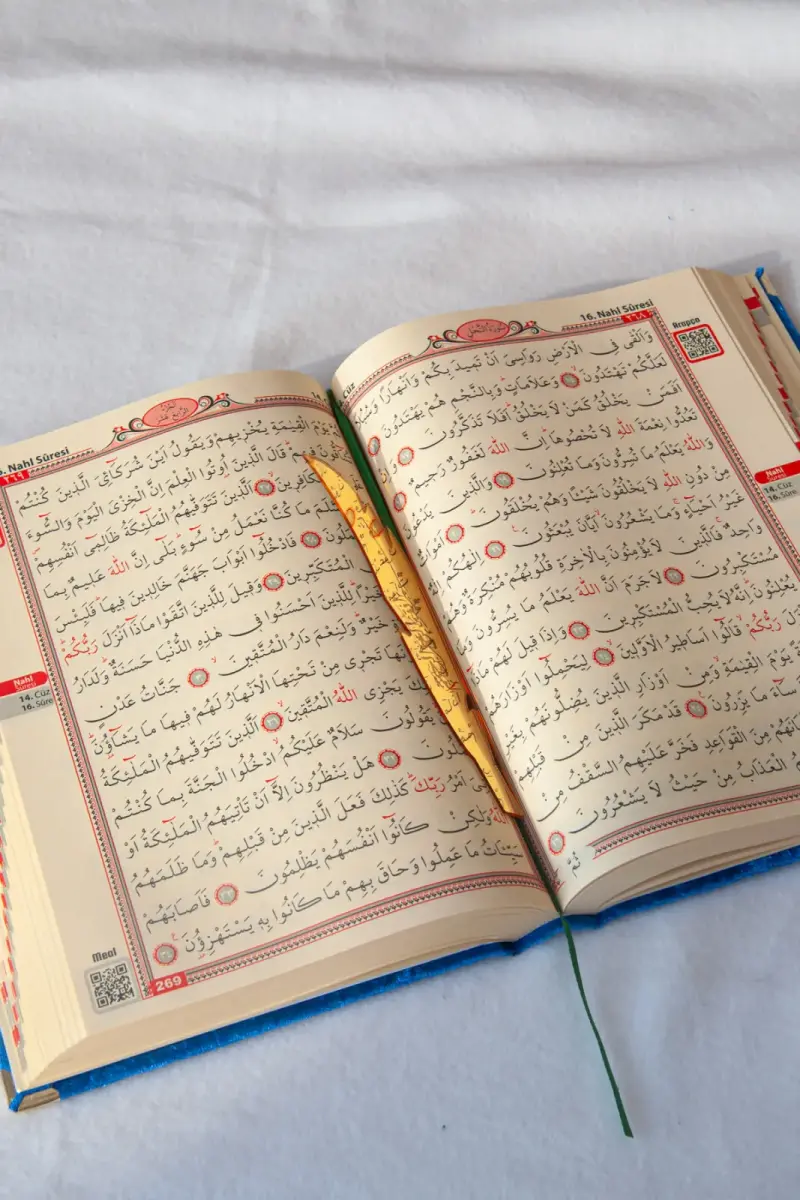 16. Nahl Sûresi
٢٦٨
سورة النحل
Arapça
وَاَلْقٰى فِى الْاَرْضِ رَوَاسِىَ اَنْ تَمِيدَ بِكُمْ وَاَنْهَارًا وَسُبُلًا
لَعَلَّكُمْ تَهْتَدُونَ ١٥ وَعَلَامَاتٍ وَبِالنَّجْمِ هُمْ يَهْتَدُونَ ١٦
اَفَمَنْ يَخْلُقُ كَمَنْ لَا يَخْلُقُ اَفَلَا تَذَكَّرُونَ ١٧ وَاِنْ
تَعُدُّوا نِعْمَةَ اللّٰهِ لَا تُحْصُوهَا اِنَّ اللّٰهَ لَغَفُورٌ رَحِيمٌ ١٨
وَاللّٰهُ يَعْلَمُ مَا تُسِرُّونَ وَمَا تُعْلِنُونَ ١٩ وَالَّذِينَ يَدْعُونَ
مِنْ دُونِ اللّٰهِ لَا يَخْلُقُونَ شَيْئًا وَهُمْ يُخْلَقُونَ ٢٠ اَمْوَاتٌ
غَيْرُ اَحْيَٓاءٍ وَمَا يَشْعُرُونَ اَيَّانَ يُبْعَثُونَ ٢١ اِلٰهُكُمْ اِلٰهٌ
وَاحِدٌ فَالَّذِينَ لَا يُؤْمِنُونَ بِالْاٰخِرَةِ قُلُوبُهُمْ مُنْكِرَةٌ وَهُمْ
مُسْتَكْبِرُونَ ٢٢ لَا جَرَمَ اَنَّ اللّٰهَ يَعْلَمُ مَا يُسِرُّونَ وَمَا
يُعْلِنُونَ اِنَّهُ لَا يُحِبُّ الْمُسْتَكْبِرِينَ ٢٣ وَاِذَا قِيلَ لَهُمْ مَاذَٓا
اَنْزَلَ رَبُّكُمْ قَالُٓوا اَسَاطِيرُ الْاَوَّلِينَ ٢٤ لِيَحْمِلُٓوا اَوْزَارَهُمْ
يَوْمَ الْقِيٰمَةِ وَمِنْ اَوْزَارِ الَّذِينَ يُضِلُّونَهُمْ بِغَيْرِ
سَٓاءَ مَا يَزِرُونَ ٢٥ قَدْ مَكَرَ الَّذِينَ مِنْ قَبْلِهِمْ
مِنَ الْقَوَاعِدِ فَخَرَّ عَلَيْهِمُ السَّقْفُ مِنْ
الْعَذَابُ مِنْ حَيْثُ لَا يَشْعُرُونَ ٢٦
ثُمَّ
Nahl
14. Cüz
16. Sûre
Nahl Sûresi
٢٦٩
يَوْمَ الْقِيٰمَةِ يُخْزِيهِمْ وَيَقُولُ اَيْنَ شُرَكَٓاءِىَ الَّذِينَ كُنْتُمْ
فِيهِمْ قَالَ الَّذِينَ اُوتُوا الْعِلْمَ اِنَّ الْخِزْىَ الْيَوْمَ وَالسُّٓوءَ
الْكَافِرِينَ ٢٧ اَلَّذِينَ تَتَوَفّٰيهُمُ الْمَلٰٓئِكَةُ ظَالِمِٓى اَنْفُسِهِمْ
السَّلَمَ مَا كُنَّا نَعْمَلُ مِنْ سُٓوءٍ بَلٰٓى اِنَّ اللّٰهَ عَلِيمٌ بِمَا
٢٨ فَادْخُلُٓوا اَبْوَابَ جَهَنَّمَ خَالِدِينَ فِيهَا فَلَبِئْسَ
الْمُتَكَبِّرِينَ ٢٩ وَقِيلَ لِلَّذِينَ اتَّقَوْا مَاذَٓا اَنْزَلَ رَبُّكُمْ
خَيْرًا لِلَّذِينَ اَحْسَنُوا فِى هٰذِهِ الدُّنْيَا حَسَنَةٌ وَلَدَارُ
خَيْرٌ وَلَنِعْمَ دَارُ الْمُتَّقِينَ ٣٠ جَنَّاتُ عَدْنٍ
تَجْرِى مِنْ تَحْتِهَا الْاَنْهَارُ لَهُمْ فِيهَا مَا يَشَٓاؤُنَ
يَجْزِى اللّٰهُ الْمُتَّقِينَ ٣١ اَلَّذِينَ تَتَوَفّٰيهُمُ الْمَلٰٓئِكَةُ
يَقُولُونَ سَلَامٌ عَلَيْكُمُ ادْخُلُوا الْجَنَّةَ بِمَا كُنْتُمْ
٣٢ هَلْ يَنْظُرُونَ اِلَّٓا اَنْ تَأْتِيَهُمُ الْمَلٰٓئِكَةُ اَوْ
اَمْرُ رَبِّكَ كَذٰلِكَ فَعَلَ الَّذِينَ مِنْ قَبْلِهِمْ وَمَا ظَلَمَهُمُ
اللّٰهُ وَلٰكِنْ كَانُٓوا اَنْفُسَهُمْ يَظْلِمُونَ ٣٣ فَاَصَابَهُمْ
مَا عَمِلُوا وَحَاقَ بِهِمْ مَا كَانُوا بِهِ يَسْتَهْزِؤُنَ ٣٤
Nahl
14. Cüz
16. Sûre
Meal
269